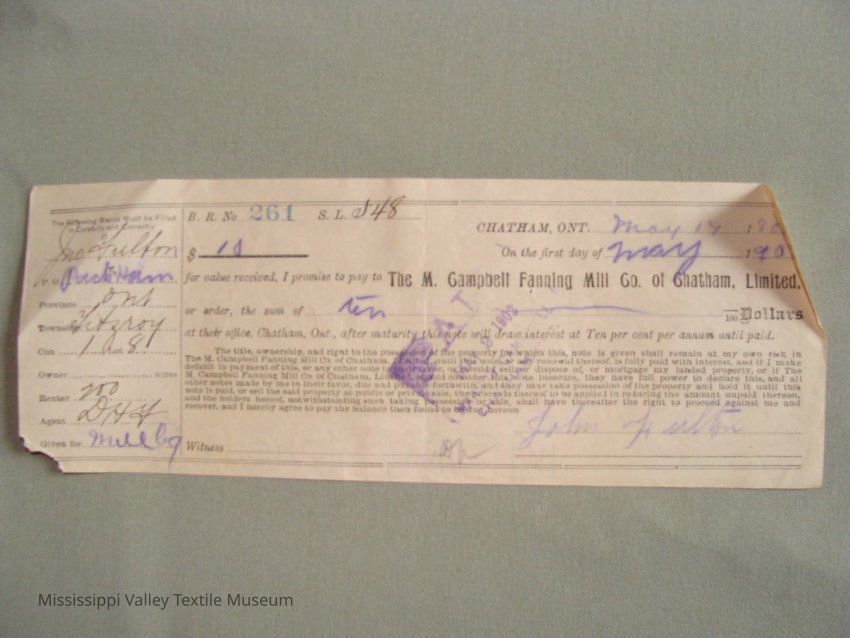 The Following Blanks Must be Filled
in Carefully and Correctly
B. R. No 261 S. L. 548
Jno Fulton
CHATHAM, ONT. May 17 190
$ 10
On the first day of May 190
P. O. Packham
for value received, I promise to pay to The M. Campbell Fanning Mill Co. of Chatham, Limited,
Province Ont
or order, the sum of ten 100 Dollars
Township Fitzroy
at their office, Chatham, Ont., after maturity this note will draw interest at Ten per cent per annum until paid.
Con 1 8
Owner acres
Renter 200
Agent D H
Given for Mill
The title, ownership, and right to the possession of the property for which, this note is given shall remain at my own risk in
The M. Campbell Fanning Mill Co. of Chatham, Limited, until this note or any renewal thereof, is fully paid with interest, and if I make
default in payment of this, or any other note in their favor, or should I sell or dispose of, or mortgage my landed property, or if The
M. Campbell Fanning Mill Co. of Chatham, Limited, should consider this note insecure, they have full power to declare this, and all
other notes made by me in their favor, due and payable forthwith, and they may take possession of the property and hold it until this
note is paid, or sell the said property at public or private sale, the proceeds thereof to be applied in reducing the amount unpaid thereon,
and the holders hereof, notwithstanding such taking possession or sale, shall have thereafter the right to proceed against me and
recover, and I hereby agree to pay the balance then found to be due hereon
John Fulton
Witness
Mississippi Valley Textile Museum